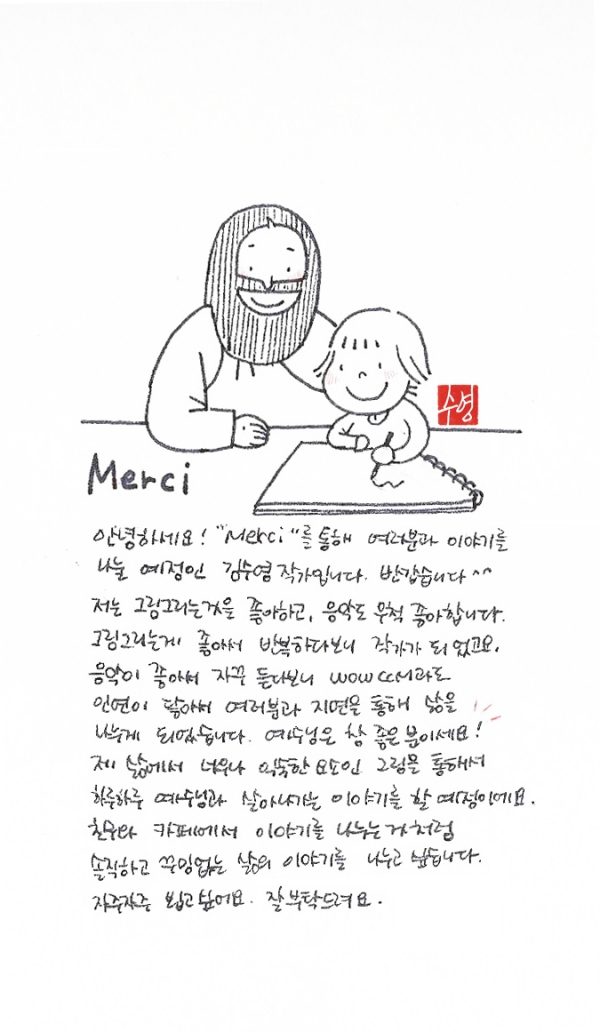 수영
Merci
안녕하세요! "Merci"를 통해 여러분과 이야기를
나눌 예정인 김수영 작가입니다. 반갑습니다^^
저는 그림그리는것을 좋아하고, 음악도 무척 좋아합니다.
그림그리는게 좋아서 반복하다보니 작가가 되었고요.
음악이 좋아서 자꾸 듣다보니 wowccm과도
인연이 닿아서 여러분과 지면을 통해 삶을
나누게 되었습니다. 예수님은 참 좋은 분이세요!
제 삶에서 너무나 익숙한 요소인 그림을 통해서
하루하루 예수님과 살아나가는 이야기를 할 예정이에요.
친구와 카페에서 이야기를 나누는거처럼
솔직하고 꾸밈없는 삶의 이야기를 나누고 싶습니다.
자주자주 뵙고싶어요. 잘부탁드려요.